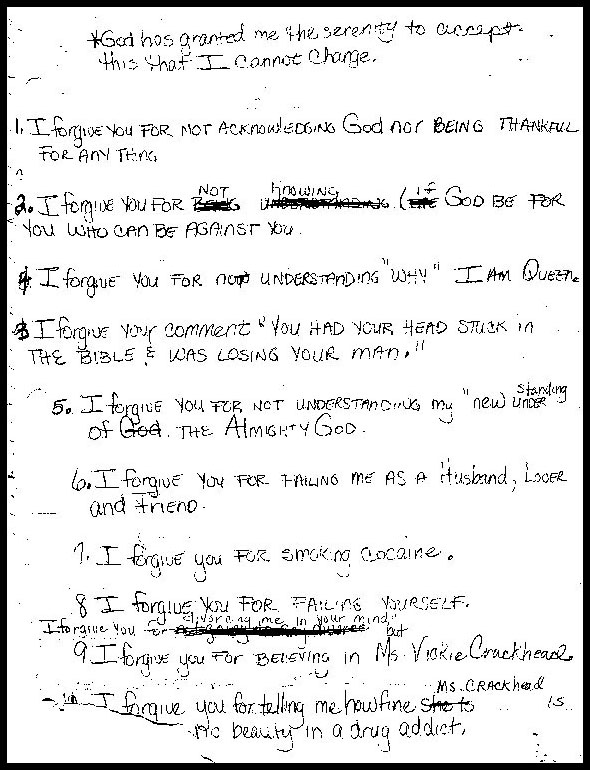 *God has granted me the serenity to accept
this that I cannot Change.
1. I forgive you FOR NOT ACKNOWLEDGING God nor BEING THANKFUL
FOR ANYTHING
NOT knowing if
2. I forgive YOU FOR (GOD BE FOR
YOU WHO CAN BE AGAINST YOU.
4 I forgive YOU FOR not UNDERSTANDING "WHY" I AM QUEEN.
3 I forgive your comment "YOU HAD YOUR HEAD STUCK in
THE BIBLE & WAS LOSING YOUR MAN."
standing
5. I forgive YOU FOR NOT UNDERSTANDING my "new UNDER
of God. THE ALMIGHTY GOD.
6. I forgive YOU FOR FAILING ME AS A Husband, LOVER
and Friend.
7. I forgive you FOR smoking cocaine.
8 I forgive YOU FOR FAILING YOURSELF.
divorcing me in your mind"
I forgive you for but
9 I forgive you FOR BELIEVING in Ms. Vickie Crackhead
Ms. CRACKhead
10 I forgive you for telling me how fine She is IS
No beauty in a drug addict.